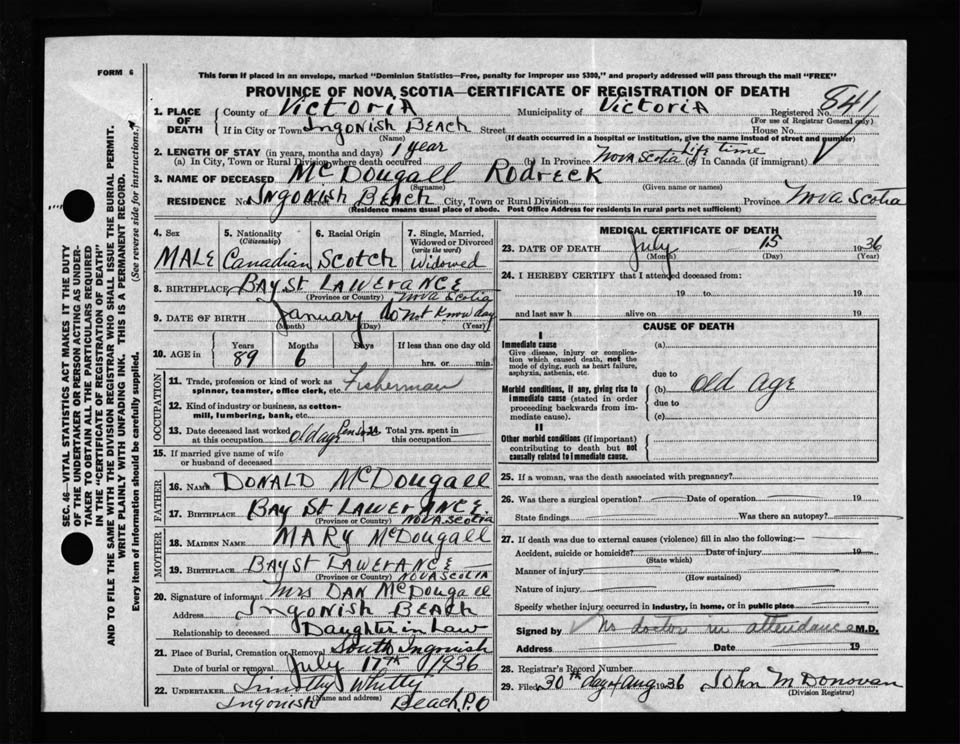 FORM 6
This form if placed in an envelope, marked "Dominion Statistics—Free, penalty for improper use $300," and properly addressed will pass through the mail "FREE"
PROVINCE OF NOVA SCOTIA—CERTIFICATE OF REGISTRATION OF DEATH
841
1. PLACE OF DEATH
County of Victoria Municipality of Victoria Registered No.
(For use of Registrar General only)
If in City or Town Ingonish Beach Street House No.
(Name) (If death occurred in a hospital or institution, give the name instead of street and number)
2. LENGTH OF STAY (in years, months and days) 1 year Life time
(a) In City, Town or Rural Division where death occurred (b) In Province Nova Scotia (c) In Canada (if immigrant)
3. NAME OF DECEASED McDougall Rodreck
(Surname) (Given name or names)
RESIDENCE No. Ingonish Beach Street City, Town or Rural Division Province Nova Scotia
(Residence means usual place of abode. Post Office Address for residents in rural parts not sufficient)
4. Sex
MALE
5. Nationality
(Citizenship)
Canadian
6. Racial Origin
Scotch
7. Single, Married, Widowed or Divorced
(write the word)
Widowed
8. BIRTHPLACE BAY ST LAWERANCE
(Province or Country) Nova Scotia
9. DATE OF BIRTH January do not Know day
(Month) (Day) (Year)
10. AGE in Years Months Days If less than one day old
89 6 hrs. or min.
OCCUPATION
11. Trade, profession or kind of work as spinner, teamster, office clerk, etc. Fisherman
12. Kind of industry or business, as cotton-mill, lumbering, bank, etc.
13. Date deceased last worked at this occupation old age Pension 14. Total yrs. spent in this occupation
15. If married give name of wife or husband of deceased
FATHER
16. NAME DONALD McDougall
17. BIRTHPLACE BAY ST LAWERANCE.
(Province or Country) NOVA SCOTIA
MOTHER
18. MAIDEN NAME MARY McDougall
19. BIRTHPLACE BAY ST LAWERANCE
(Province or Country) NOVA SCOTIA
20. Signature of informant Mrs DAN McDougall
Address Ingonish BEACH
Relationship to deceased Daughter in Law
21. Place of Burial, Cremation or Removal South Ingonish
Date of burial or removal July 17th 1936
22. UNDERTAKER Timothy Whitty
(Name and address)
Ingonish Beach, P.O
MEDICAL CERTIFICATE OF DEATH
23. DATE OF DEATH July 15 1936
(Month) (Day) (Year)
24. I HEREBY CERTIFY that I attended deceased from:
19 to 19
and last saw h alive on 19
CAUSE OF DEATH
I
Immediate cause (a)
Give disease, injury or complication which caused death, not the mode of dying, such as heart failure, asphyxia, asthenia, etc.
due to
Morbid conditions, if any, giving rise to immediate cause (stated in order proceeding backwards from immediate cause).
(b) old Age
due to
(c)
II
Other morbid conditions (if important) contributing to death but not causally related to immediate cause.
25. If a woman, was the death associated with pregnancy?
26. Was there a surgical operation? Date of operation 19
State findings Was there an autopsy?
27. If death was due to external causes (violence) fill in also the following:—
Accident, suicide or homicide? Date of injury 19
(State which)
Manner of injury
(How sustained)
Nature of injury
Specify whether injury occurred in industry, in home, or in public place
Signed by No doctor in attendance M.D.
Address Date 19
28. Registrar's Record Number
29. Filed 30th day of Aug 1936 John M Donovan
(Division Registrar)
SEC. 46—VITAL STATISTICS ACT MAKES IT THE DUTY
OF THE UNDERTAKER OR PERSON ACTING AS UNDER-
TAKER TO OBTAIN ALL THE PARTICULARS REQUIRED
IN THE "CERTIFICATE OF REGISTRATION OF DEATH"
AND TO FILE THE SAME WITH THE DIVISION REGISTRAR WHO SHALL ISSUE THE BURIAL PERMIT.
WRITE PLAINLY WITH UNFADING INK. THIS IS A PERMANENT RECORD.
Every item of information should be carefully supplied. (See reverse side for instructions.)